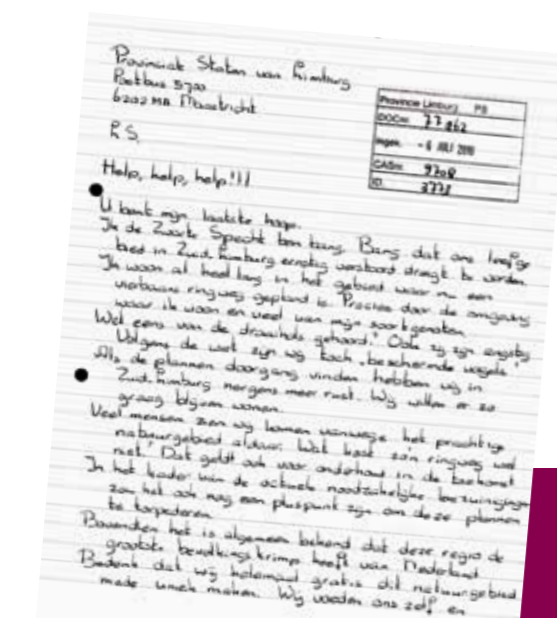 Provinciale Staten van Limburg
Postbus 5700
6202 MA Maastricht
Provincie Limburg PS
DOCnr. 77862
Ingek. - 6 JULI 2010
CASnr. 9708
ID. 3773
L.S.
Help, help, help!!!
U bent mijn laatste hoop.
Ik de Zwarte Specht ben bang. Bang dat ons leefge
bied in Zuid-Limburg ernstig verstoord dreigt te worden.
Ik woon al heel lang in het gebied waar nu een
vierbaans ringweg gepland is. Precies door de omgeving
waar ik woon en veel van mijn soortgenoten.
Wel eens van de gehoord? Ook zij zijn angstig
Volgens de wet zijn wij toch "beschermde vogels".
Als de plannen doorgang vinden hebben wij in
Zuid-Limburg nergens meer rust. Wij willen er zo
graag blijven wonen.
Veel mensen zien wij komen vanwege het prachtige
natuurgebied aldaar. Wat kost zo'n ringweg wel
niet! Dat geldt ook voor onderhoud in de toekomst
In het kader van de actuele noodzakelijke bezuinigingen
zou het ook nog een pluspunt zijn om deze plannen
te torpederen.
Bovendien het is algemeen bekend dat deze regio de
grootste bevolkingskrimp heeft van Nederland
Bedenk dat wij helemaal gratis dit natuurgebied
mede uniek maken. Wij voeden ons zelf en